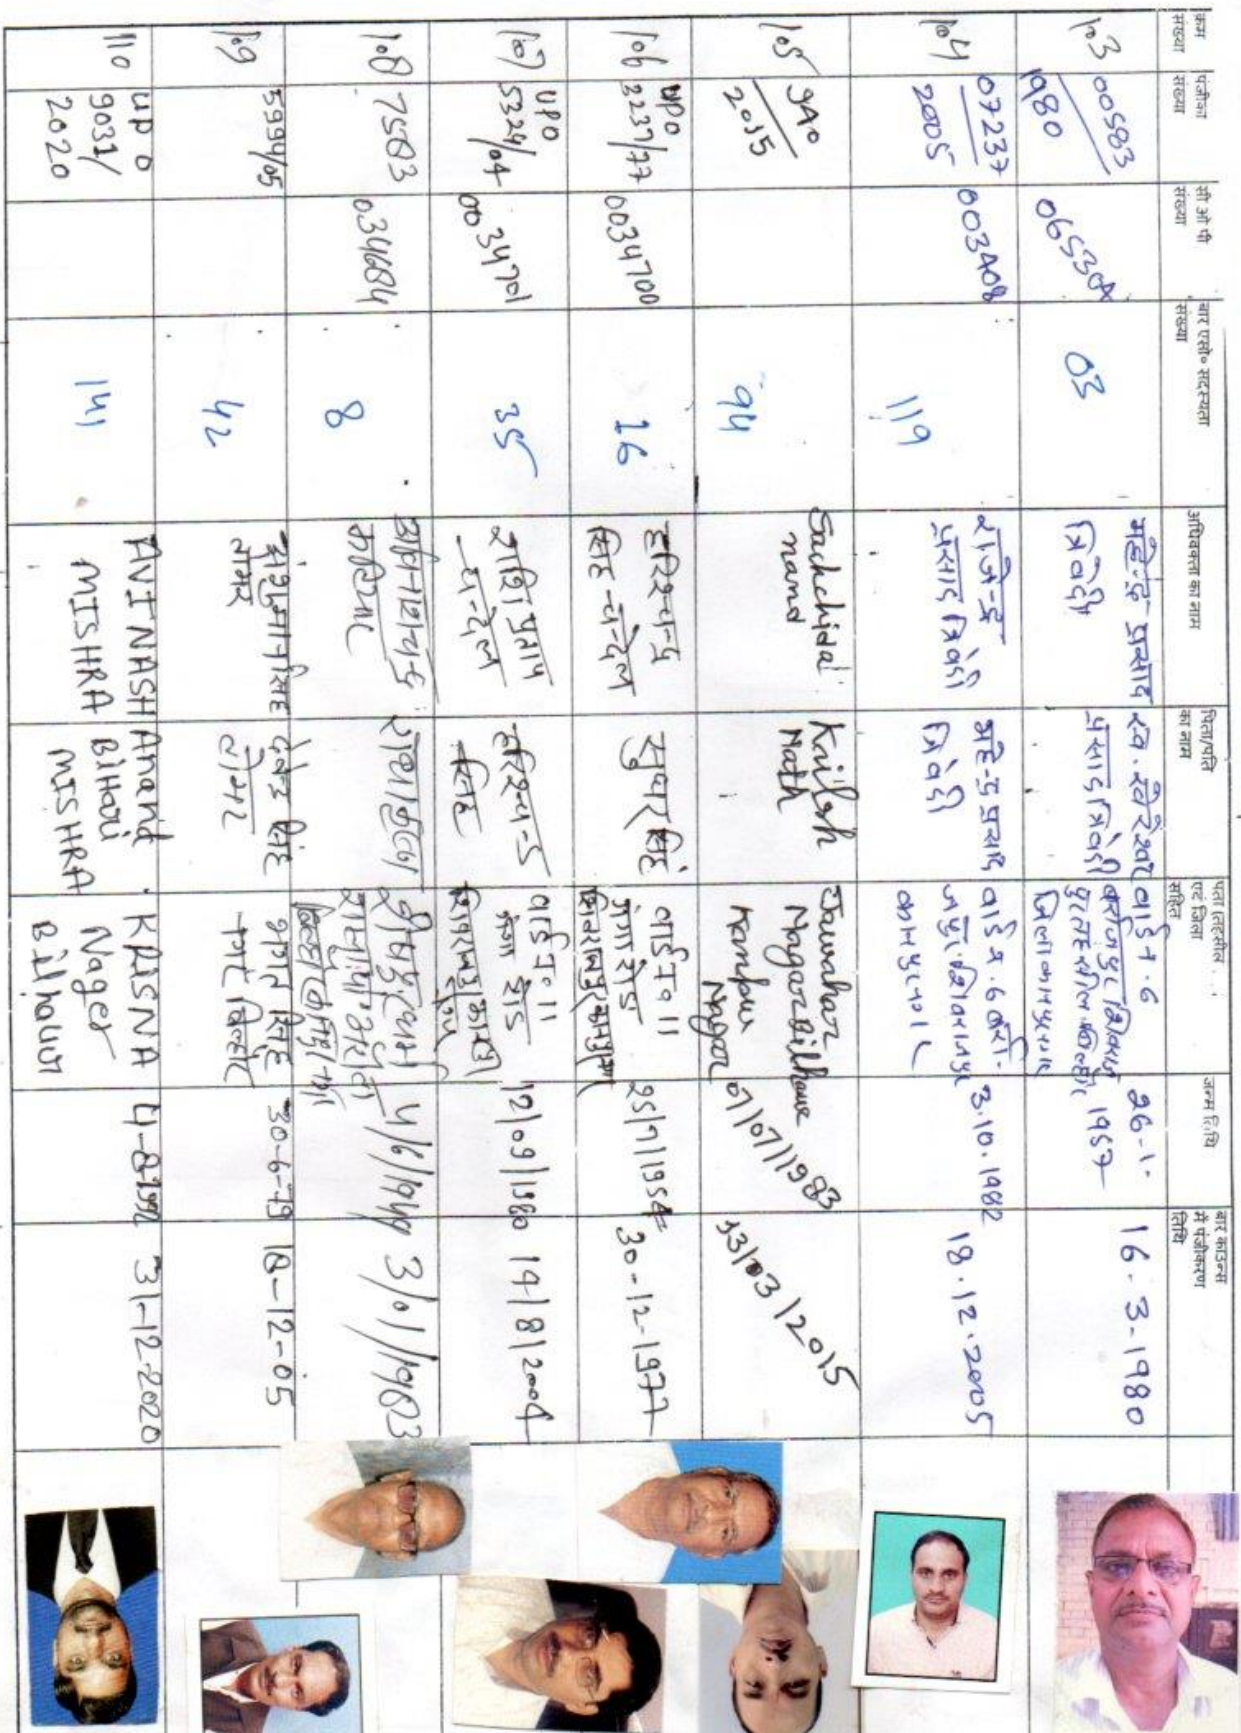 क्रम
संख्या
पंजीका
संख्या
सी ओ पी
संख्या
बार एसो० सदस्यता
संख्या
अधिवक्ता का नाम
पिता/पति
का नाम
पता तहसील
एवं जिला
सहित
जन्म तिथि
बार काउन्स
में पंजीकरण
तिथि
103
00583
1980
065304
03
महेन्द्र प्रसाद
त्रिवेदी
स्व. खेरेश्वर
प्रसाद त्रिवेदी
वार्ड न. 6
26-1-
1957
16-3-1980
104
07237
2005
003408
119
राजेन्द्र
प्रसाद त्रिवेदी
महेन्द्र प्रसाद
त्रिवेदी
वार्ड न. 6
3.10.1982
18.12.2005
105
940
2015
94
Sachchida
nand
Kailash
Nath
Jawahar
Nagar Bilhaur
Kanpur
Nagar
07/07/1983
13/03/2015
106
UPO
2237/77
0034700
16
हरिश्चन्द्र
सिंह चन्देल
सुघर सिंह
वार्ड न० 11
गंगा रोड
25/7/1954
30-12-1977
107
UPO
5324/04
0034701
35
शशि प्रताप
चन्देल
हरिश्चन्द्र
सिंह
वार्ड न० 11
गंगा रोड
12/09/1980
14/8/2004
108
75883
034684
8
कटियार
4/6/1949
3/01/1983
109
5994/05
42
अंशुमान सिंह
तोमर
सिंह
तोमर
भगत सिंह
नगर बिल्हौर
30-6-79
18-12-05
110
UP 0
9031/
2020
141
AVINASH
MISHRA
Anand
BiHari
MISHRA
KRISNA
Nager
Bilhaur
4-8-1992
31-12-2020